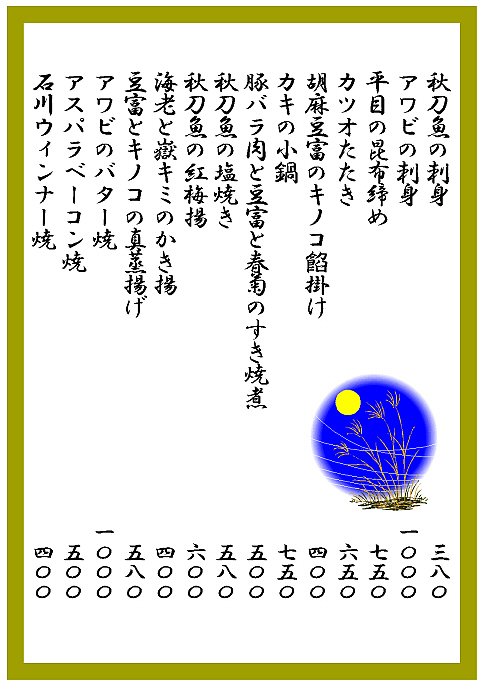 秋刀魚の刺身 三八〇
アワビの刺身 一〇〇〇
平目の昆布締め 七五〇
カツオたたき 六五〇
胡麻豆富のキノコ餡掛け 四〇〇
カキの小鍋 七五〇
豚バラ肉と豆富と春菊のすき焼煮 五〇〇
秋刀魚の塩焼き 五八〇
秋刀魚の紅梅揚 六〇〇
海老と嶽キミのかき揚 四〇〇
豆富とキノコの真蒸揚げ 五八〇
アワビのバター焼 一〇〇〇
アスパラベーコン焼 五〇〇
石川ウィンナー焼 四〇〇